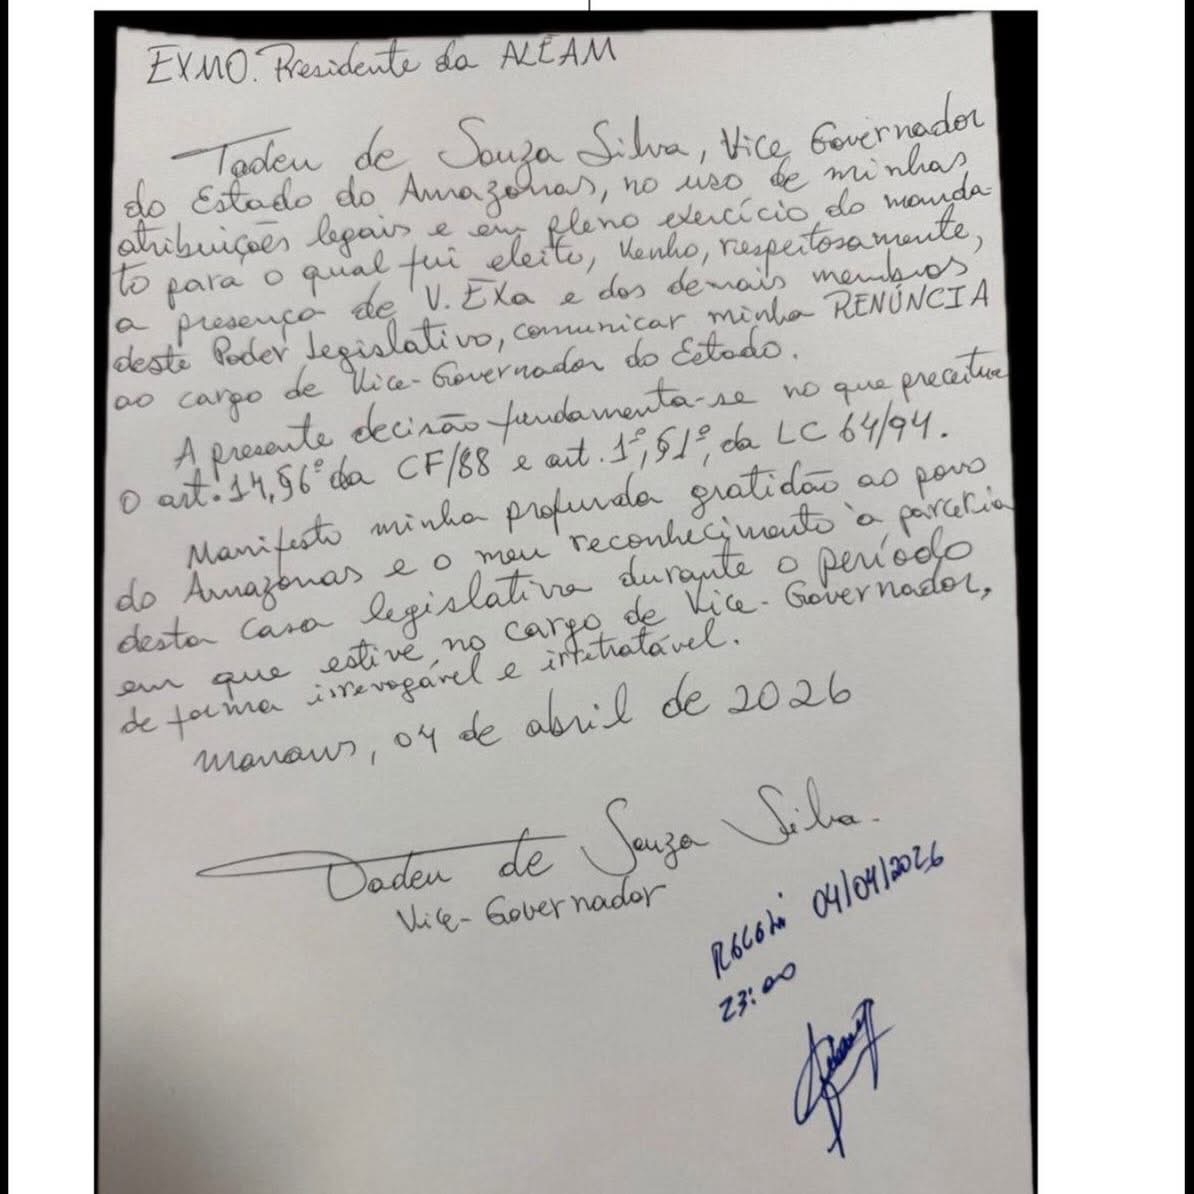 EXMO. Presidente da ALEAM
Tadeu de Souza Silva, Vice Governador
do Estado do Amazonas, no uso de minhas
atribuições legais e em pleno exercício do manda-
to para o qual fui eleito, Venho, respeitosamente,
a presença de V. EXa e dos demais membros
deste Poder Legislativo, comunicar minha RENÚNCIA
ao cargo de Vice-Governador do Estado.
A presente decisão fundamenta-se no que preceitua
o art. 14, §6º da CF/88 e art. 1º, §1º, da LC 64/94.
Manifesto minha profunda gratidão ao povo
do Amazonas e o meu reconhecimento à parceria
desta Casa legislativa durante o período
em que estive no cargo de Vice-Governador,
de forma irrevogável e irretratável.
Manaus, 04 de abril de 2026
Tadeu de Souza Silva.
Vice-Governador
Recebi 04/04/2026
23:00